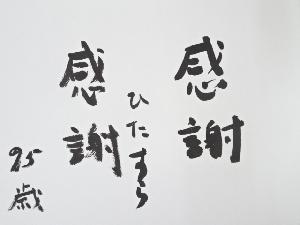 感謝
ひたすら
感謝
95歳